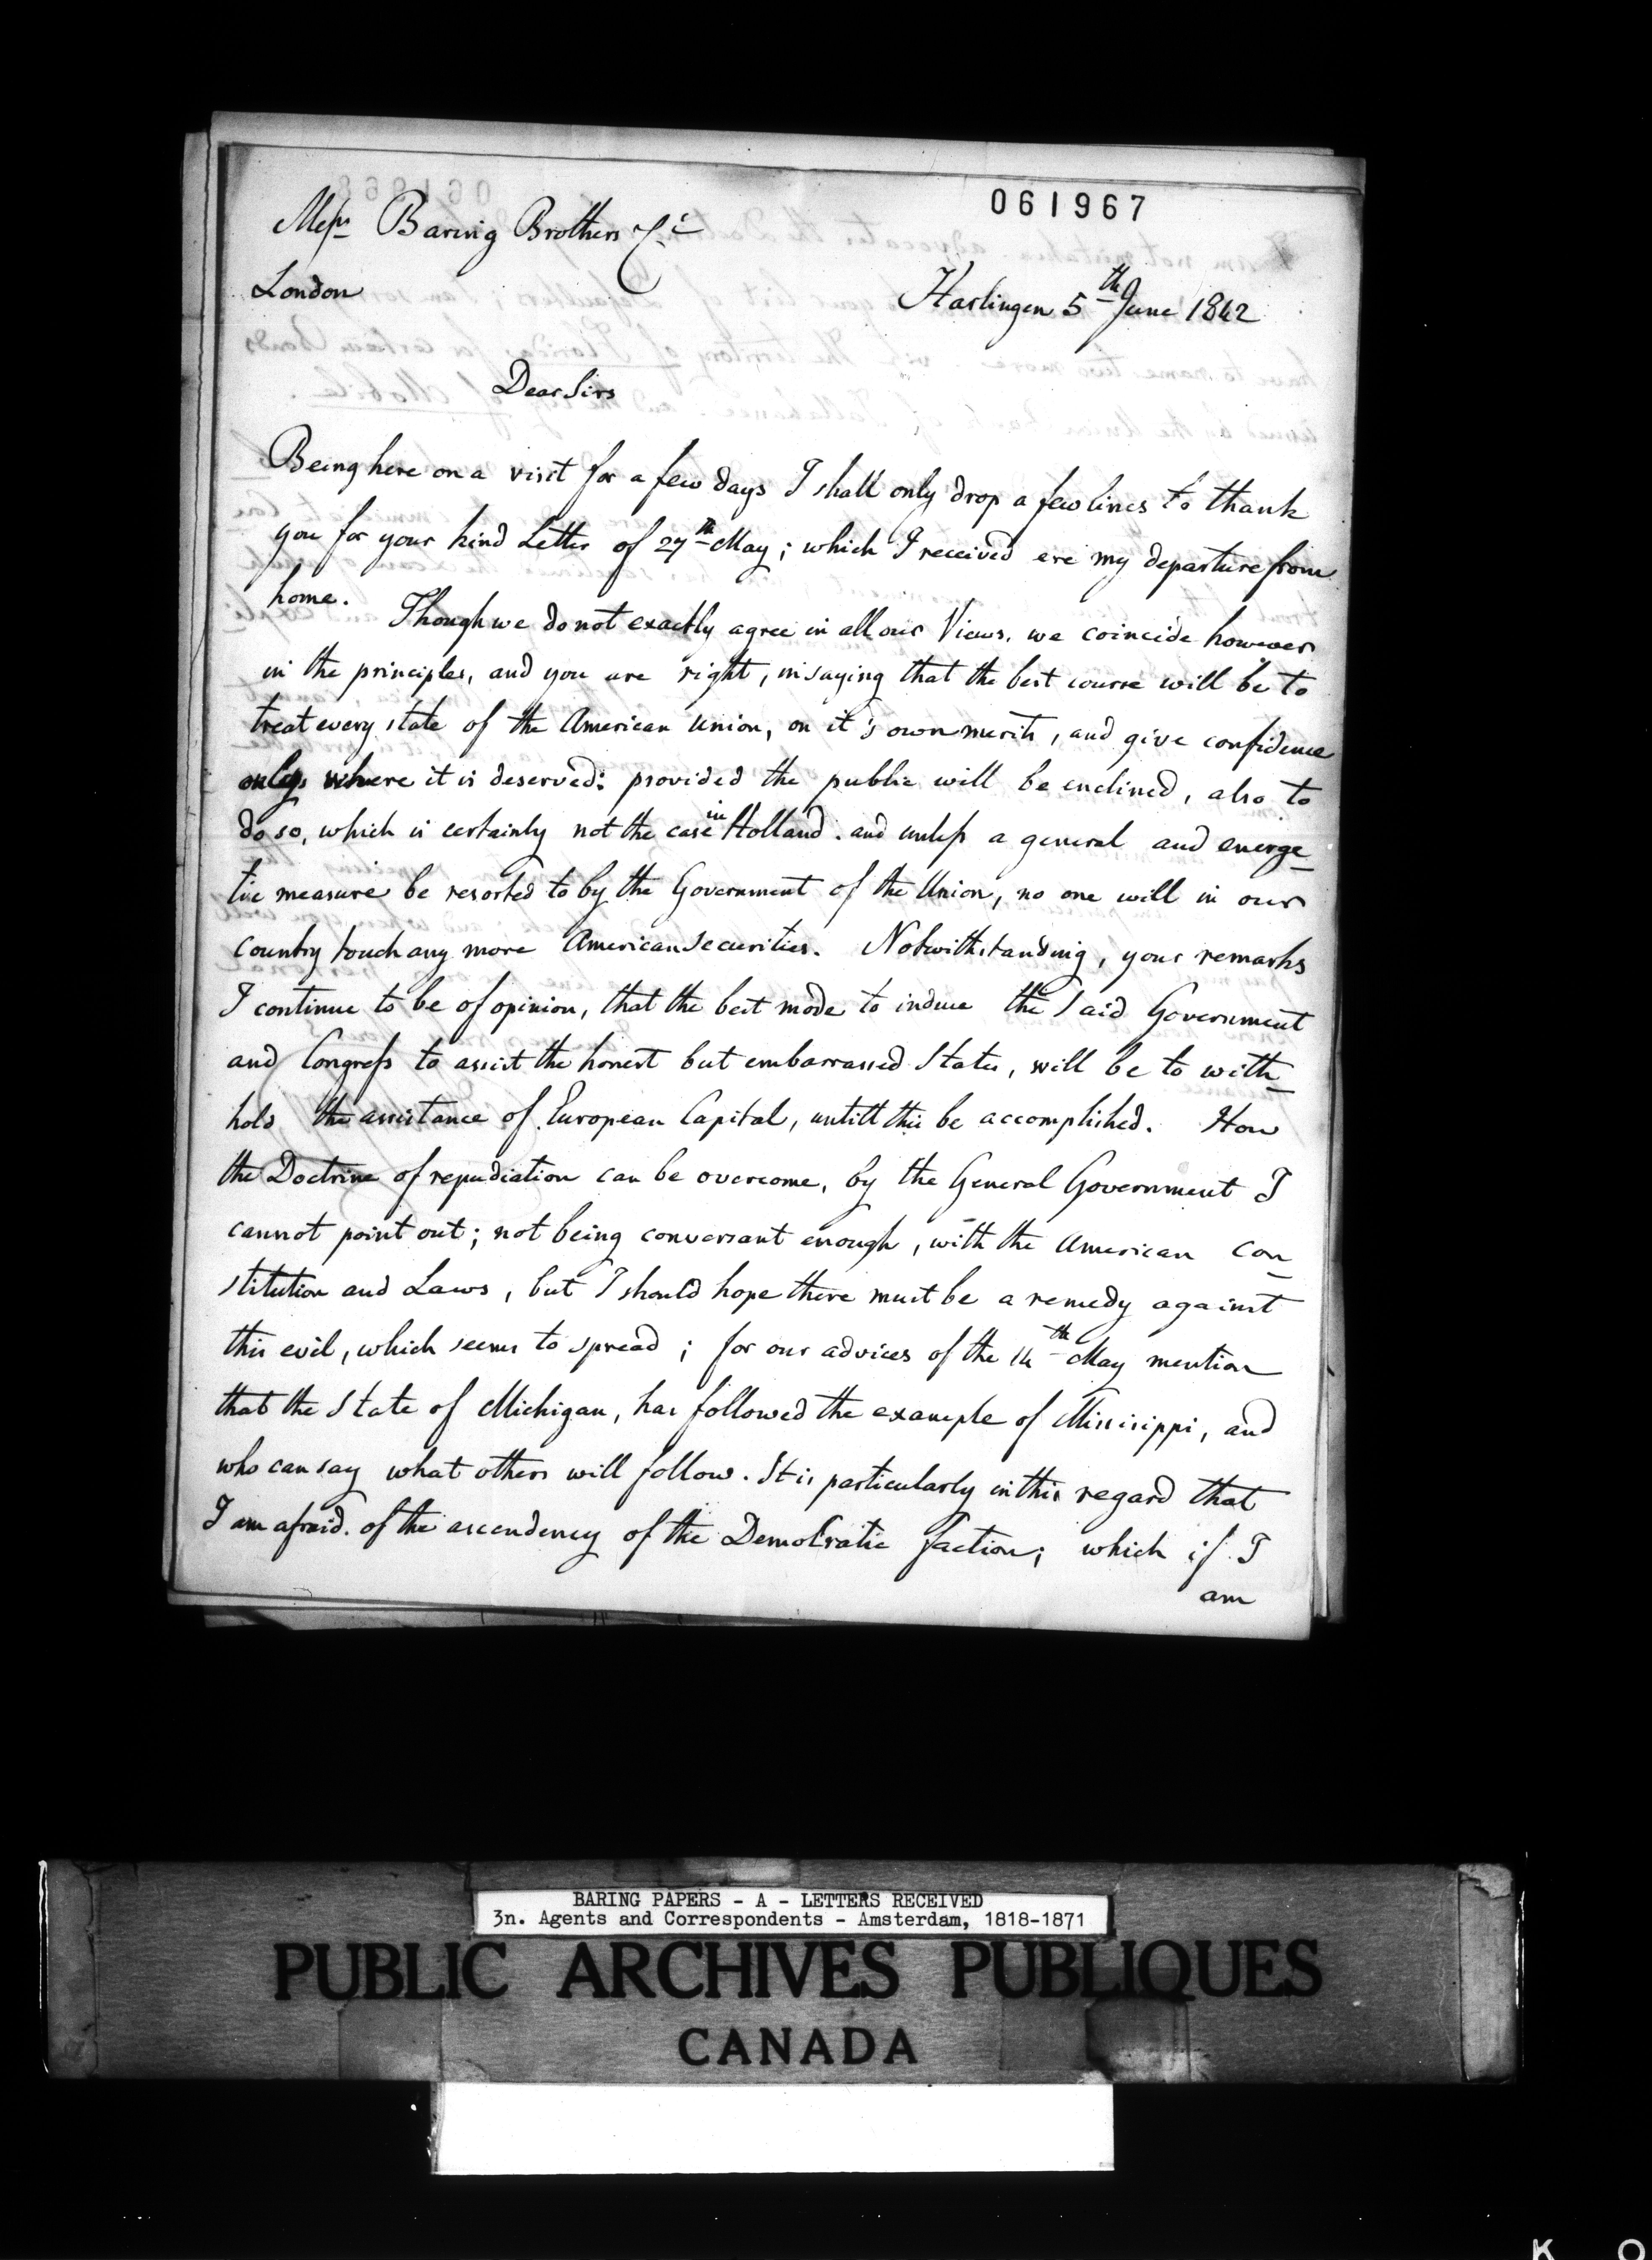 061967
Messrs Baring Brothers & Co
London
Harlingen 5th June 1842
Dear Sirs
Being here on a visit for a few days I shall only drop a few lines to thank
you for your kind Letter of 27th May; which I received ere my departure from
home. Though we do not exactly agree in all our Views, we coincide however
in the principles, and you are right, in saying that the best course will be to
treat every state of the American Union, on it's own merits, and give confidence
only where it is deserved: provided the public will be enclined, also to
do so, which is certainly not the case in Holland. and unless a general and energe-
tic measure be resorted to by the Government of the Union, no one will in our
country touch any more American Securities. Notwithstanding, your remarks
I continue to be of opinion, that the best mode to induce the said Government
and Congress to assist the honest but embarrassed States, will be to with-
hold the assistance of European Capital, untill this be accomplished. How
the Doctrine of repudiation can be overcome, by the General Government I
cannot point out; not being conversant enough, with the American Con-
stitution and Laws, but I should hope there must be a remedy against
this evil, which seems to spread; for our advices of the 14th May mention
that the State of Michigan, has followed the example of Missisippi, and
who can say what others will follow. It is particularly in this regard that
I am afraid. of the ascendency of the Democratic faction; which if I
am
BARING PAPERS - A - LETTERS RECEIVED
3n. Agents and Correspondents - Amsterdam, 1818-1871
PUBLIC ARCHIVES PUBLIQUES
CANADA
K O